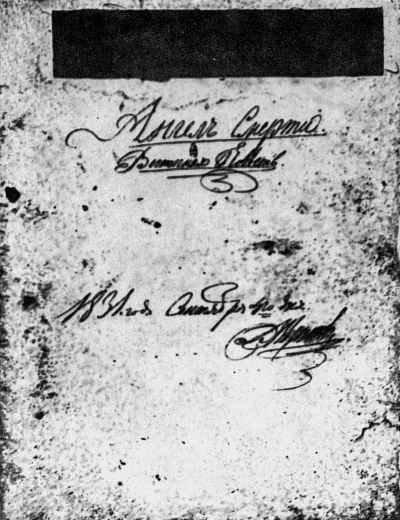 Ангелъ Смерти.
Восточная Повѣсть.
1831 года Сентября 4го дня.